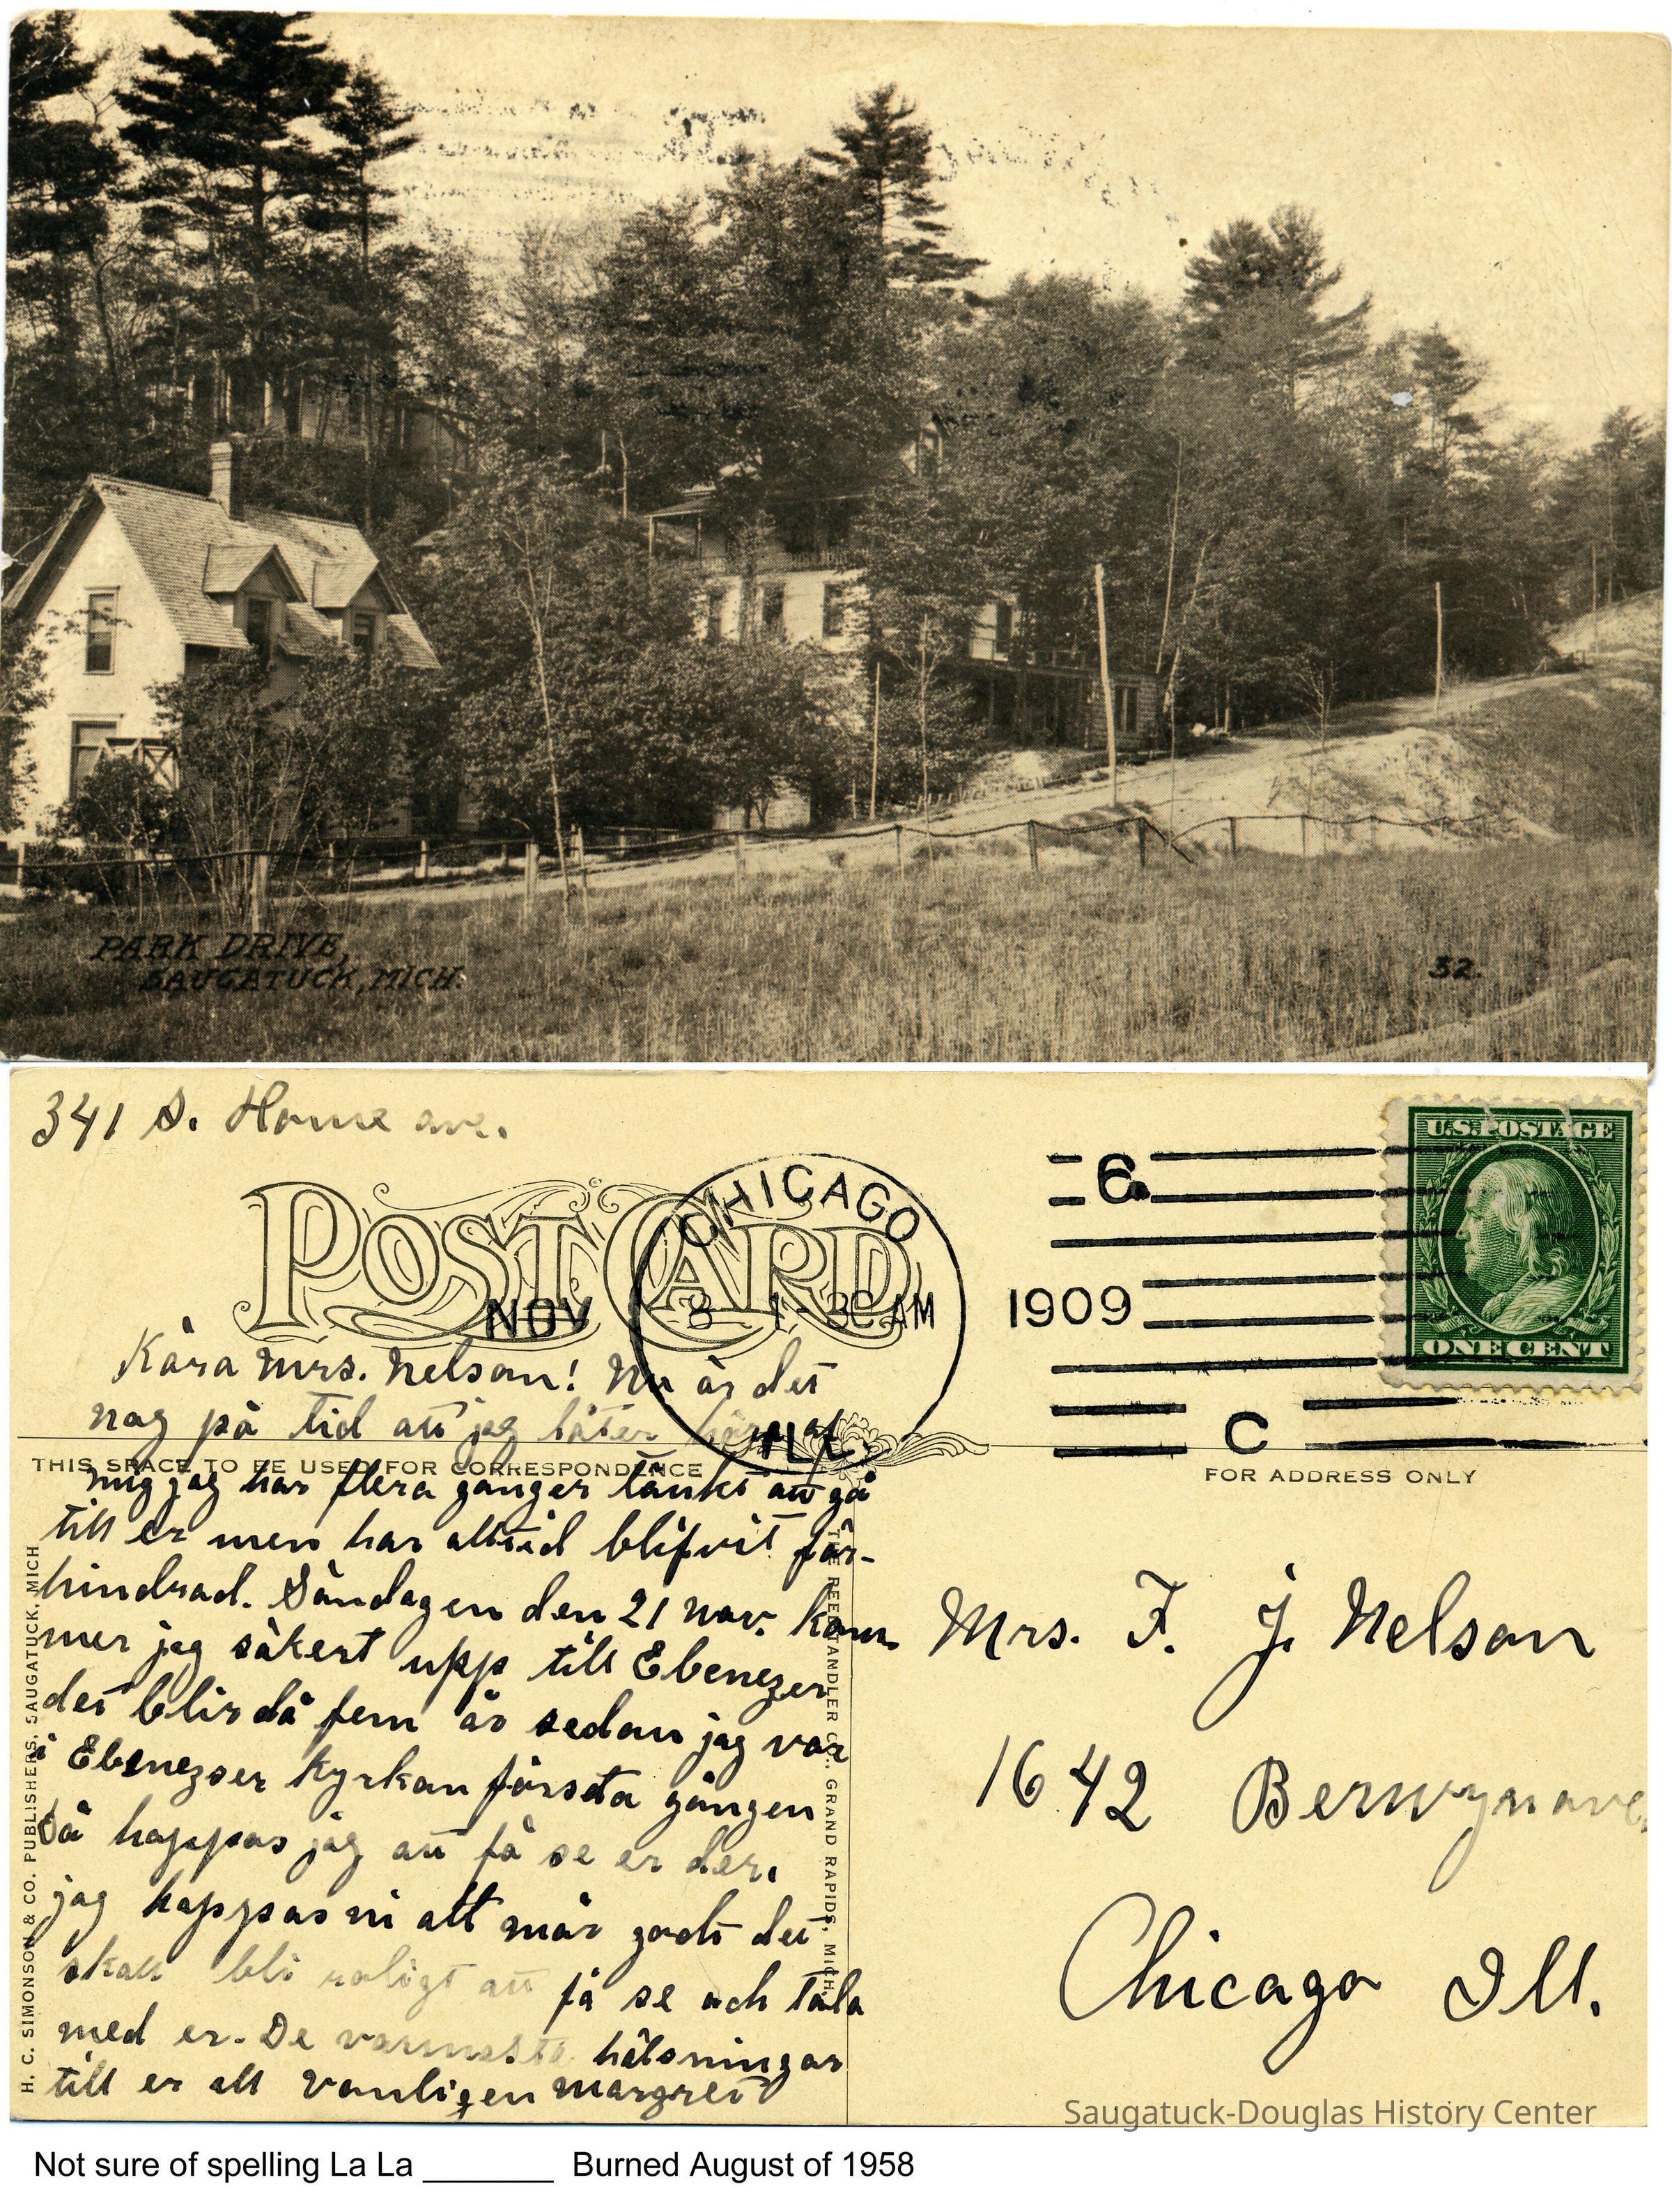 PARK DRIVE,
SAUGATUCK, MICH.
32.
341 S. Home ave.
POST CARD
CHICAGO
NOV 8 1-30 AM 1909
ILL.
6
C
U.S. POSTAGE
ONE CENT
Kära Mrs. Nelson! Nu är det
nog på tid att jag låter höra af
THIS SPACE TO BE USED FOR CORRESPONDENCE
FOR ADDRESS ONLY
mig jag har flera gånger tänkt att gå
till er men har alltid blifvit för-
hindrad. Söndagen den 21 nov. kom-
mer jag säkert upp till Ebenezer
det blir då fem år sedan jag var
i Ebenezser kyrkan försata gången
så hoppas jag att få se er der.
jag hoppas ni alt mår godt det
skall bli roligt att få se och tala
med er. De varmaste hälsningar
till er all vänligen Margret
Mrs. F. J. Nelson
1642 Berwyn ave.
Chicago Ill.
H. C. SIMONSON & CO. PUBLISHERS, SAUGATUCK, MICH
THE REED TANDLER CO., GRAND RAPIDS, MICH.
Saugatuck-Douglas History Center
Not sure of spelling La La _______ Burned August of 1958